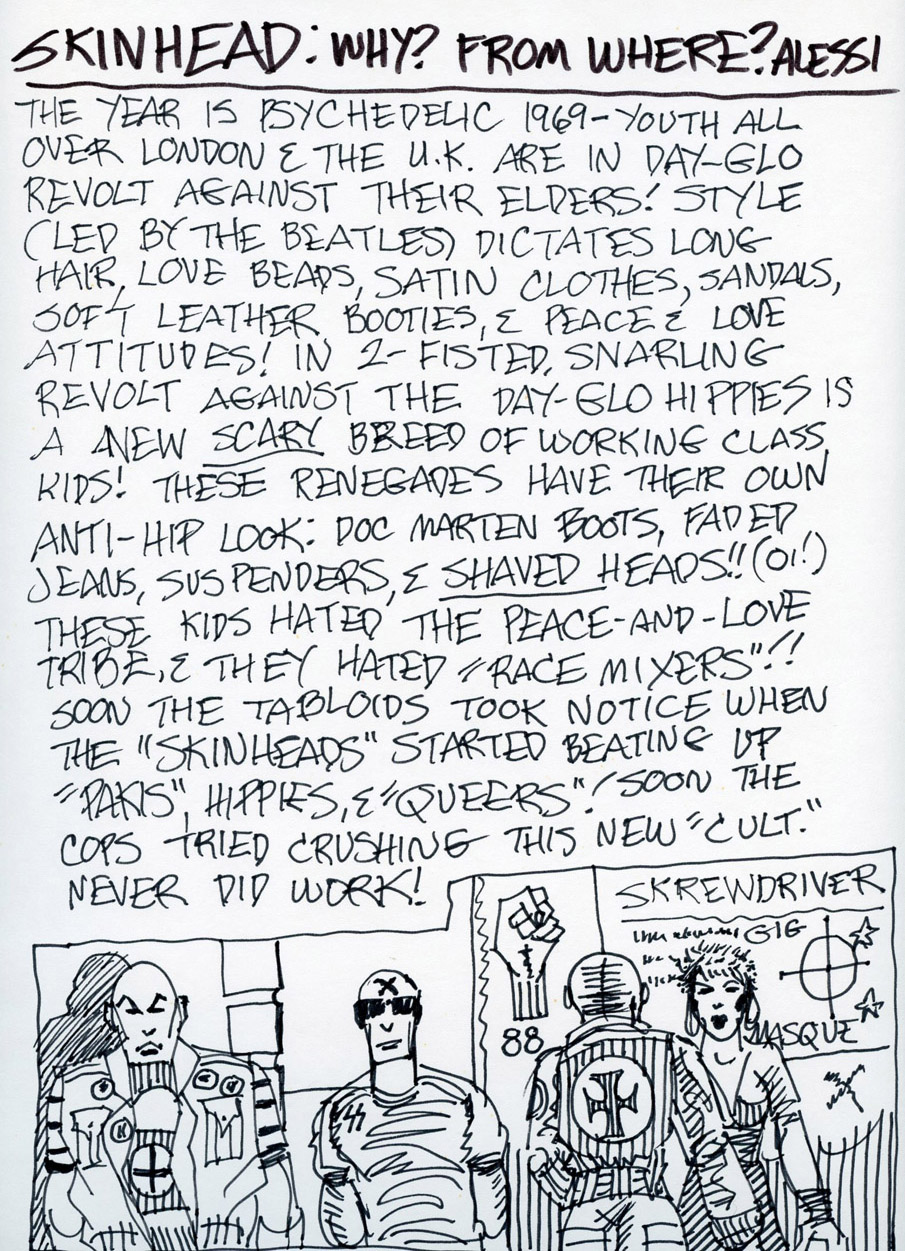 SKINHEAD: WHY? FROM WHERE? ALESSI
THE YEAR IS PSYCHEDELIC 1969-YOUTH ALL
OVER LONDON & THE U.K. ARE IN DAY-GLO
REVOLT AGAINST THEIR ELDERS! STYLE
(LED BY THE BEATLES) DICTATES LONG
HAIR, LOVE BEADS, SATIN CLOTHES, SANDALS,
SOFT LEATHER BOOTIES, & PEACE & LOVE
ATTITUDES! IN 2-FISTED, SNARLING
REVOLT AGAINST THE DAY-GLO HIPPIES IS
A NEW SCARY BREED OF WORKING CLASS
KIDS! THESE RENEGADES HAVE THEIR OWN
ANTI-HIP LOOK: DOC MARTEN BOOTS, FADED
JEANS, SUSPENDERS, & SHAVED HEADS!! (OI!)
THESE KIDS HATED THE PEACE-AND-LOVE
TRIBE, & THEY HATED "RACE MIXERS"!!
SOON THE TABLOIDS TOOK NOTICE WHEN
THE "SKINHEADS" STARTED BEATING UP
"PAKIS", HIPPIES, & "QUEERS"! SOON THE
COPS TRIED CRUSHING THIS NEW "CULT."
NEVER DID WORK!
SKREWDRIVER
GIG
MASQUE
88